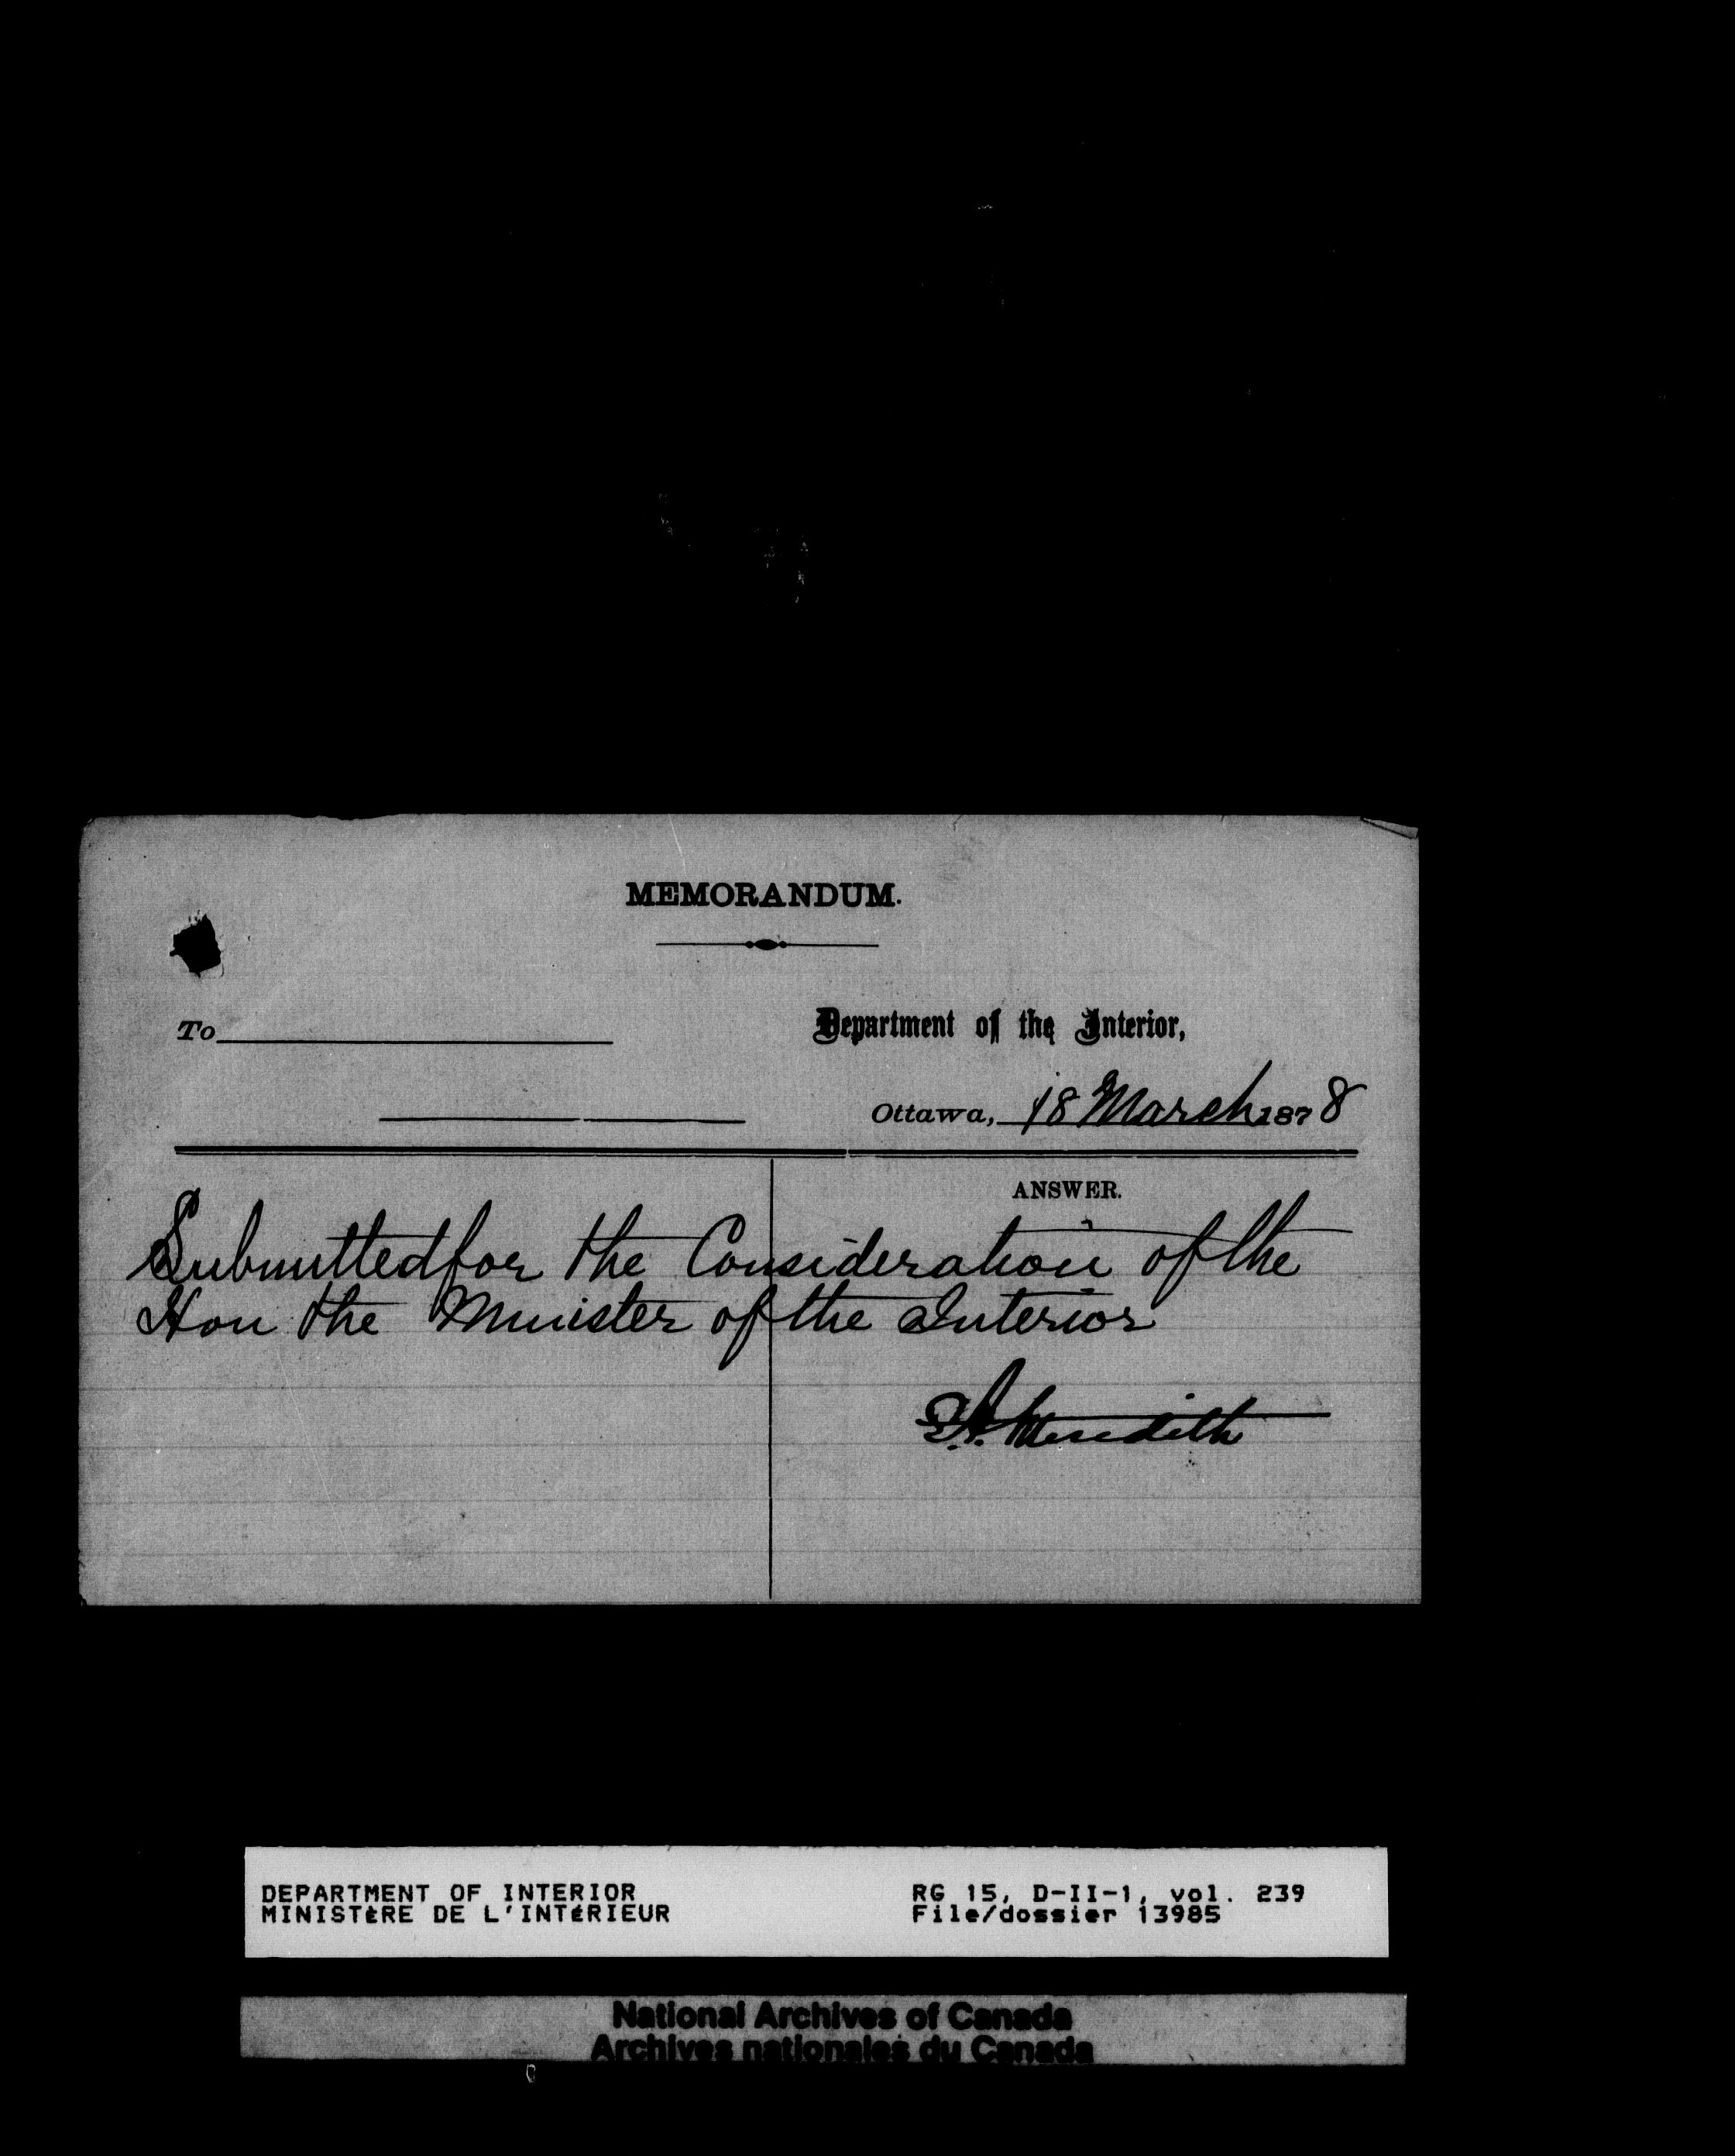 MEMORANDUM.
To
Department of the Interior,
Ottawa, 18 March 1878
ANSWER.
Submitted for the Consideration of the
Hon the Minister of the Interior
E.A. Meredith
DEPARTMENT OF INTERIOR
MINISTÈRE DE L'INTÉRIEUR
RG 15, D-II-1, vol. 239
File/dossier 13985
National Archives of Canada
Archives nationales du Canada